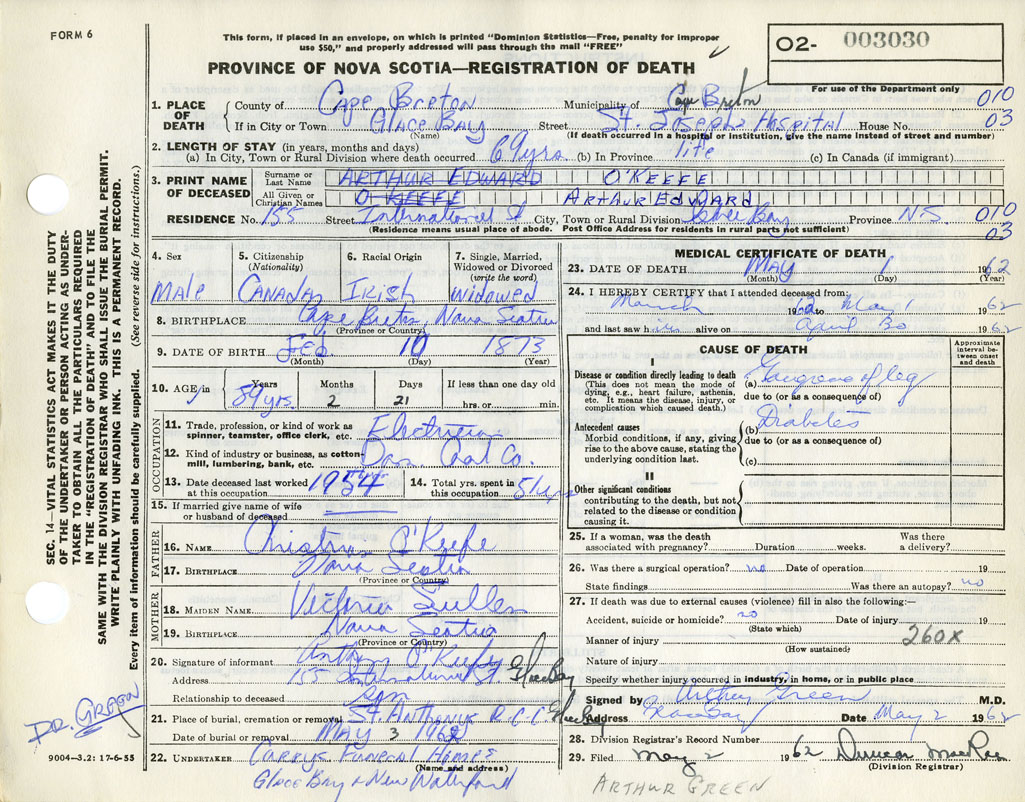 FORM 6
This form, if placed in an envelope, on which is printed "Dominion Statistics—Free, penalty for improper
use $50," and properly addressed will pass through the mail "FREE"
PROVINCE OF NOVA SCOTIA—REGISTRATION OF DEATH
O2- 003030
For use of the Department only
1. PLACE OF DEATH County of Cape Breton Municipality of Cape Breton 010
If in City or Town Glace Bay Street St. Josephs Hospital House No. 03
(Name) (If death occurred in a hospital or institution, give the name instead of street and number)
2. LENGTH OF STAY (in years, months and days)
(a) In City, Town or Rural Division where death occurred 69 yrs (b) In Province life (c) In Canada (if immigrant)
3. PRINT NAME OF DECEASED Surname or Last Name ARTHUR EDWARD O'KEEFE
All Given or Christian Names O'KEEFE ARTHUR EDWARD
RESIDENCE No. 155 Street International St City, Town or Rural Division Glace Bay Province N S 010
(Residence means usual place of abode. Post Office Address for residents in rural parts not sufficient) 03
4. Sex 5. Citizenship (Nationality) 6. Racial Origin 7. Single, Married, Widowed or Divorced (write the word)
Male Canada Irish Widowed
8. BIRTHPLACE Cape Breton, Nova Scotia
(Province or Country)
9. DATE OF BIRTH Feb 10 1873
(Month) (Day) (Year)
10. AGE in Years Months Days If less than one day old
89 yrs. 2 21 hrs. or min.
OCCUPATION
11. Trade, profession, or kind of work as spinner, teamster, office clerk, etc. Electrician
12. Kind of industry or business, as cotton-mill, lumbering, bank, etc. Dom. Coal Co.
13. Date deceased last worked at this occupation 1954 14. Total yrs. spent in this occupation 51 yrs
15. If married give name of wife or husband of deceased
FATHER
16. NAME O'Keefe
17. BIRTHPLACE Nova Scotia
(Province or Country)
MOTHER
18. MAIDEN NAME Victoria
19. BIRTHPLACE Nova Scotia
(Province or Country)
20. Signature of informant O'Keefe
Address 155 International St. Glace Bay
Relationship to deceased son
21. Place of burial, cremation or removal St. Anthonys R.C.C. Glace Bay
Date of burial or removal May 3 1962
22. UNDERTAKER Currys Funeral Home
(Name and address)
Glace Bay & New Waterford
MEDICAL CERTIFICATE OF DEATH
23. DATE OF DEATH May 1 1962
(Month) (Day) (Year)
24. I HEREBY CERTIFY that I attended deceased from:
March 1962 to May 1 1962
and last saw him alive on April 30 1962
CAUSE OF DEATH
Approximate interval between onset and death
I
Disease or condition directly leading to death
(This does not mean the mode of dying, e.g., heart failure, asthenia, etc. It means the disease, injury, or complication which caused death.)
(a) Gangrene of leg
due to (or as a consequence of)
Antecedent causes
Morbid conditions, if any, giving rise to the above cause, stating the underlying condition last.
(b) Diabetes
due to (or as a consequence of)
(c)
II
Other significant conditions
contributing to the death, but not related to the disease or condition causing it.
25. If a woman, was the death associated with pregnancy? Duration weeks. Was there a delivery?
26. Was there a surgical operation? no Date of operation 19
State findings Was there an autopsy? no
27. If death was due to external causes (violence) fill in also the following:—
Accident, suicide or homicide? no Date of injury 19
(State which)
Manner of injury 260X
(How sustained)
Nature of injury
Specify whether injury occurred in industry, in home, or in public place
Signed by Arthur Green M.D.
Address Glace Bay Date May 2 1962
28. Division Registrar's Record Number
29. Filed May 2 1962 Duncan MacRae
(Division Registrar)
ARTHUR GREEN
SEC. 14—VITAL STATISTICS ACT MAKES IT THE DUTY
OF THE UNDERTAKER OR PERSON ACTING AS UNDER-
TAKER TO OBTAIN ALL THE PARTICULARS REQUIRED
IN THE "REGISTRATION OF DEATH" AND TO FILE THE
SAME WITH THE DIVISION REGISTRAR WHO SHALL ISSUE THE BURIAL PERMIT.
WRITE PLAINLY WITH UNFADING INK. THIS IS A PERMANENT RECORD.
Every item of information should be carefully supplied. (See reverse side for instructions.)
DR.
9004—3.2: 17-6-55